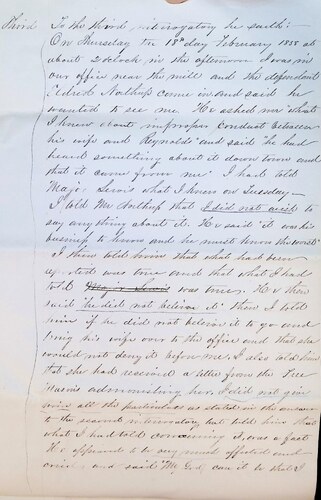 Third To the third, interrogatory he saith:
On Thursday the 18th day February 1858 at
about 2 oclock in the afternoon I was in
our office near the mill and the defendant
Eldred Northup came in and said he
wanted to see me. He asked me "what
I knew about improper conduct between
his wife and Reynolds" and said "he had
heard something about it down town and
that it came from me". I had told
Majr Lewis what I knew on Tuesday—
I told Mr Northup that I did not wish to
say anything about it. He said "it was his
business to know and he must know the worst"
I then told him that what had been
reported was true and that what I had
told Major Lewis was true. He then
said "he did not believe it" then I told
him if he did not believe it to go and
bring his wife over to the office and that she
would not deny it before me. I also told him
that she had received a letter from the Free
Masons admonishing her. I did not give
him all the particulars as stated in the answer
to the second interrogatory but told him that
what I had told concerning it, was a fact
He appeared to be very much affected and
and said "My God, can it be that I